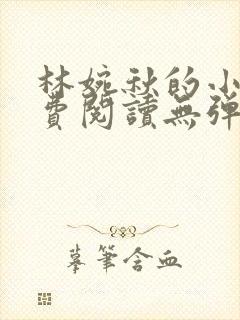 林婉秋的小
費閱讀無彈
摹筆含血